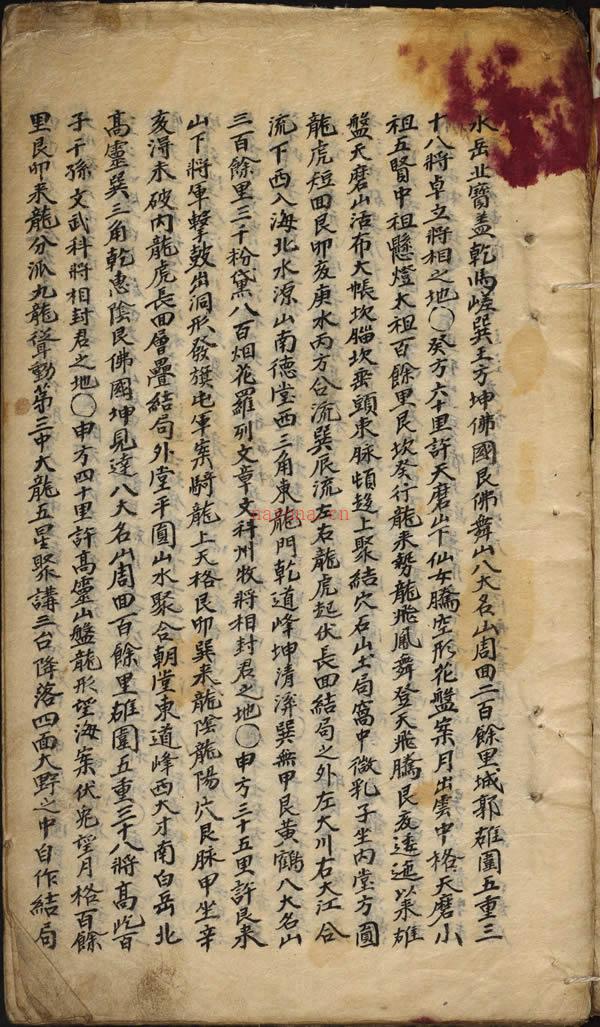 水岳北寶盖乾馬嵯巽王方坤佛國艮佛舞山八大名山周回二百餘里城郭雄圍五重三
十八將卓立將相之地〇癸方六十里許天磨山下仙女騰空形花盤案月出雲中格天磨小
祖五賢中祖懸燈太祖百餘里艮坎癸行龍来勢龍飛鳳舞登天飛騰艮亥逶迤以来雄
盤天磨山活布大帳坎腦坎垂頭東脉頓起上聚結穴石山土局窩中微乳子坐內堂方圓
龍虎短回艮卯亥庚水丙方合流巽辰流左右龍虎起伏長回結局之外左大川右大江合
流下西入海北水源山南德堂西三角東龍門乾道峰坤清溪巽無甲艮黃鶴八大名山
三百餘里三千粉黛八百烟花羅列文章文科州牧將相封君之地〇申方三十五里許艮来
山下將軍擊鼓出洞形發旗屯軍案騎龍上天格艮卯巽来龍陰龍陽穴艮脉甲坐辛
亥得未破內龍虎長回層疊結局外堂平圓山水聚合朝堂東道峰西大才南白岳北
高靈巽三角乾惠陰艮佛國坤見達八大名山周回百餘里雄圍五重三十八將高屹百
子千孫文武科將相封君之地〇申方四十里許高靈山盤龍形望海案伏兎望月格百餘
里艮卯来龍分派九龍聳動第三中大龍五星聚講三台降落四面大野之中自作結局